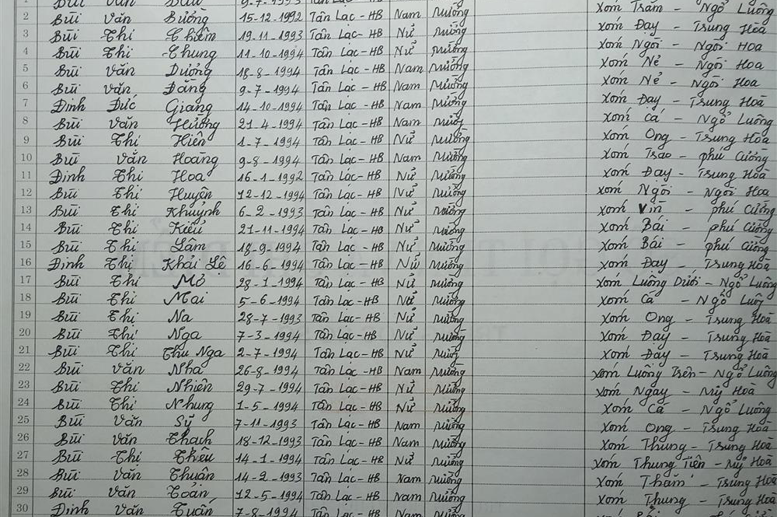 Bùi Văn 9-7-1993 Tân Lạc-HB Nam Mường Xóm Trám - Ngổ Luông
2 Bùi Văn Bường 15-12-1992 Tân Lạc-HB Nam Mường Xóm Đay - Trung Hoà
3 Bùi Thị Chiêm 19-11-1993 Tân Lạc-HB Nữ Mường Xóm Ngòi - Ngòi Hoa
4 Bùi Thị Chung 11-10-1994 Tân Lạc-HB Nữ Mường Xóm Nẻ - Ngòi Hoa
5 Bùi Văn Dưởng 18-8-1994 Tân Lạc-HB Nam Mường Xóm Nẻ - Ngòi Hoa
6 Bùi Văn Đăng 9-7-1994 Tân Lạc-HB Nam Mường Xóm Đay - Trung Hoà
7 Đinh Đức Giang 14-10-1994 Tân Lạc-HB Nam Mường Xóm Cá - Ngổ Luông
8 Bùi Văn Hưởng 21-4-1994 Tân Lạc-HB Nam Mường Xóm Ong - Trung Hoà
9 Bùi Thị Hiên 1-7-1994 Tân Lạc-HB Nữ Mường Xóm Trao - Phú Cường
10 Bùi Văn Hoàng 9-8-1994 Tân Lạc-HB Nam Mường Xóm Đay - Trung Hoà
11 Đinh Thị Hoa 16-1-1992 Tân Lạc-HB Nữ Mường Xóm Ngòi - Ngòi Hoa
12 Bùi Thị Huyện 12-12-1994 Tân Lạc-HB Nữ Mường Xóm Vìn - Phú Cường
13 Bùi Thị Khuỳnh 6-2-1993 Tân Lạc-HB Nữ Mường Xóm Bái - Phú Cường
14 Bùi Thị Kiều 21-11-1994 Tân Lạc-HB Nữ Mường Xóm Bái - Phú Cường
15 Bùi Thị Lâm 18-9-1994 Tân Lạc-HB Nữ Mường Xóm Đay - Trung Hoà
16 Đinh Thị Khải Lệ 16-6-1994 Tân Lạc-HB Nữ Mường Xóm Luông Dưới - Ngổ Luông
17 Bùi Thị Mỏ 28-1-1994 Tân Lạc-HB Nữ Mường Xóm Cá - Ngổ Luông
18 Bùi Thị Mai 5-6-1994 Tân Lạc-HB Nữ Mường Xóm Ong - Trung Hoà
19 Bùi Thị Na 28-7-1993 Tân Lạc-HB Nữ Mường Xóm Đay - Trung Hoà
20 Bùi Thị Nga 7-3-1994 Tân Lạc-HB Nữ Mường Xóm Đay - Trung Hoà
21 Bùi Thị Thu Nga 2-7-1994 Tân Lạc-HB Nữ Mường Xóm Luông Trên - Ngổ Luông
22 Bùi Văn Nha 26-8-1994 Tân Lạc-HB Nam Mường Xóm Ngay - Mỹ Hoà
23 Bùi Thị Nhiên 29-7-1994 Tân Lạc-HB Nữ Mường Xóm Cá - Ngổ Luông
24 Bùi Thị Nhung 1-5-1994 Tân Lạc-HB Nữ Mường Xóm Ong - Trung Hoà
25 Bùi Văn Sỹ 7-11-1993 Tân Lạc-HB Nam Mường Xóm Thung - Trung Hoà
26 Bùi Văn Thạch 18-12-1993 Tân Lạc-HB Nam Mường Xóm Thung Tiên - Mỹ Hoà
27 Bùi Thị Thêu 14-1-1994 Tân Lạc-HB Nữ Mường Xóm Thăm - Trung Hoà
28 Bùi Văn Thuân 14-2-1993 Tân Lạc-HB Nam Mường Xóm Thung - Trung Hoà
29 Bùi Văn Toan 12-5-1994 Tân Lạc-HB Nam Mường
30 Đinh Văn Tuấn 7-8-1994 Tân Lạc-HB Nam Mường